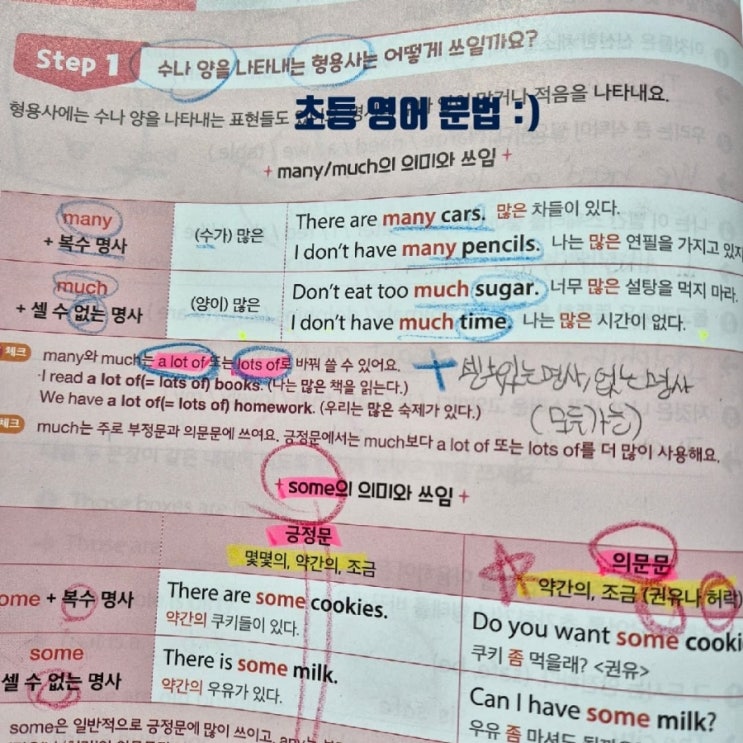 Step 1 수나 양을 나타내는 형용사는 어떻게 쓰일까요?
형용사에는 수나 양을 나타내는 표현들도 많거나 적음을 나타내요.
초등 영어 문법 :)
+ many/much의 의미와 쓰임 +
many
+ 복수 명사
(수가) 많은
There are many cars. 많은 차들이 있다.
I don't have many pencils. 나는 많은 연필을 가지고 있지
much
+ 셀 수 없는 명사
(양이) 많은
Don't eat too much sugar. 너무 많은 설탕을 먹지 마라.
I don't have much time. 나는 많은 시간이 없다.
체크 many와 much는 a lot of 또는 lots of로 바꿔 쓸 수 있어요.
·I read a lot of(= lots of) books. (나는 많은 책을 읽는다.)
We have a lot of(= lots of) homework. (우리는 많은 숙제가 있다.)
+ 셀수있는명사, 없는명사
(모두가능)
체크 much는 주로 부정문과 의문문에 쓰여요. 긍정문에서는 much보다 a lot of 또는 lots of를 더 많이 사용해요.
+ some의 의미와 쓰임 +
긍정문
몇몇의, 약간의, 조금
의문문
약간의, 조금 (권유나 허락)
ome + 복수 명사
There are some cookies.
약간의 쿠키들이 있다.
Do you want some cooki
쿠키 좀 먹을래? <권유>
some
셀 수 없는 명사
There is some milk.
약간의 우유가 있다.
Can I have some milk?
우유 좀 마셔도
some은 일반적으로 긍정문에 많이 쓰이고,